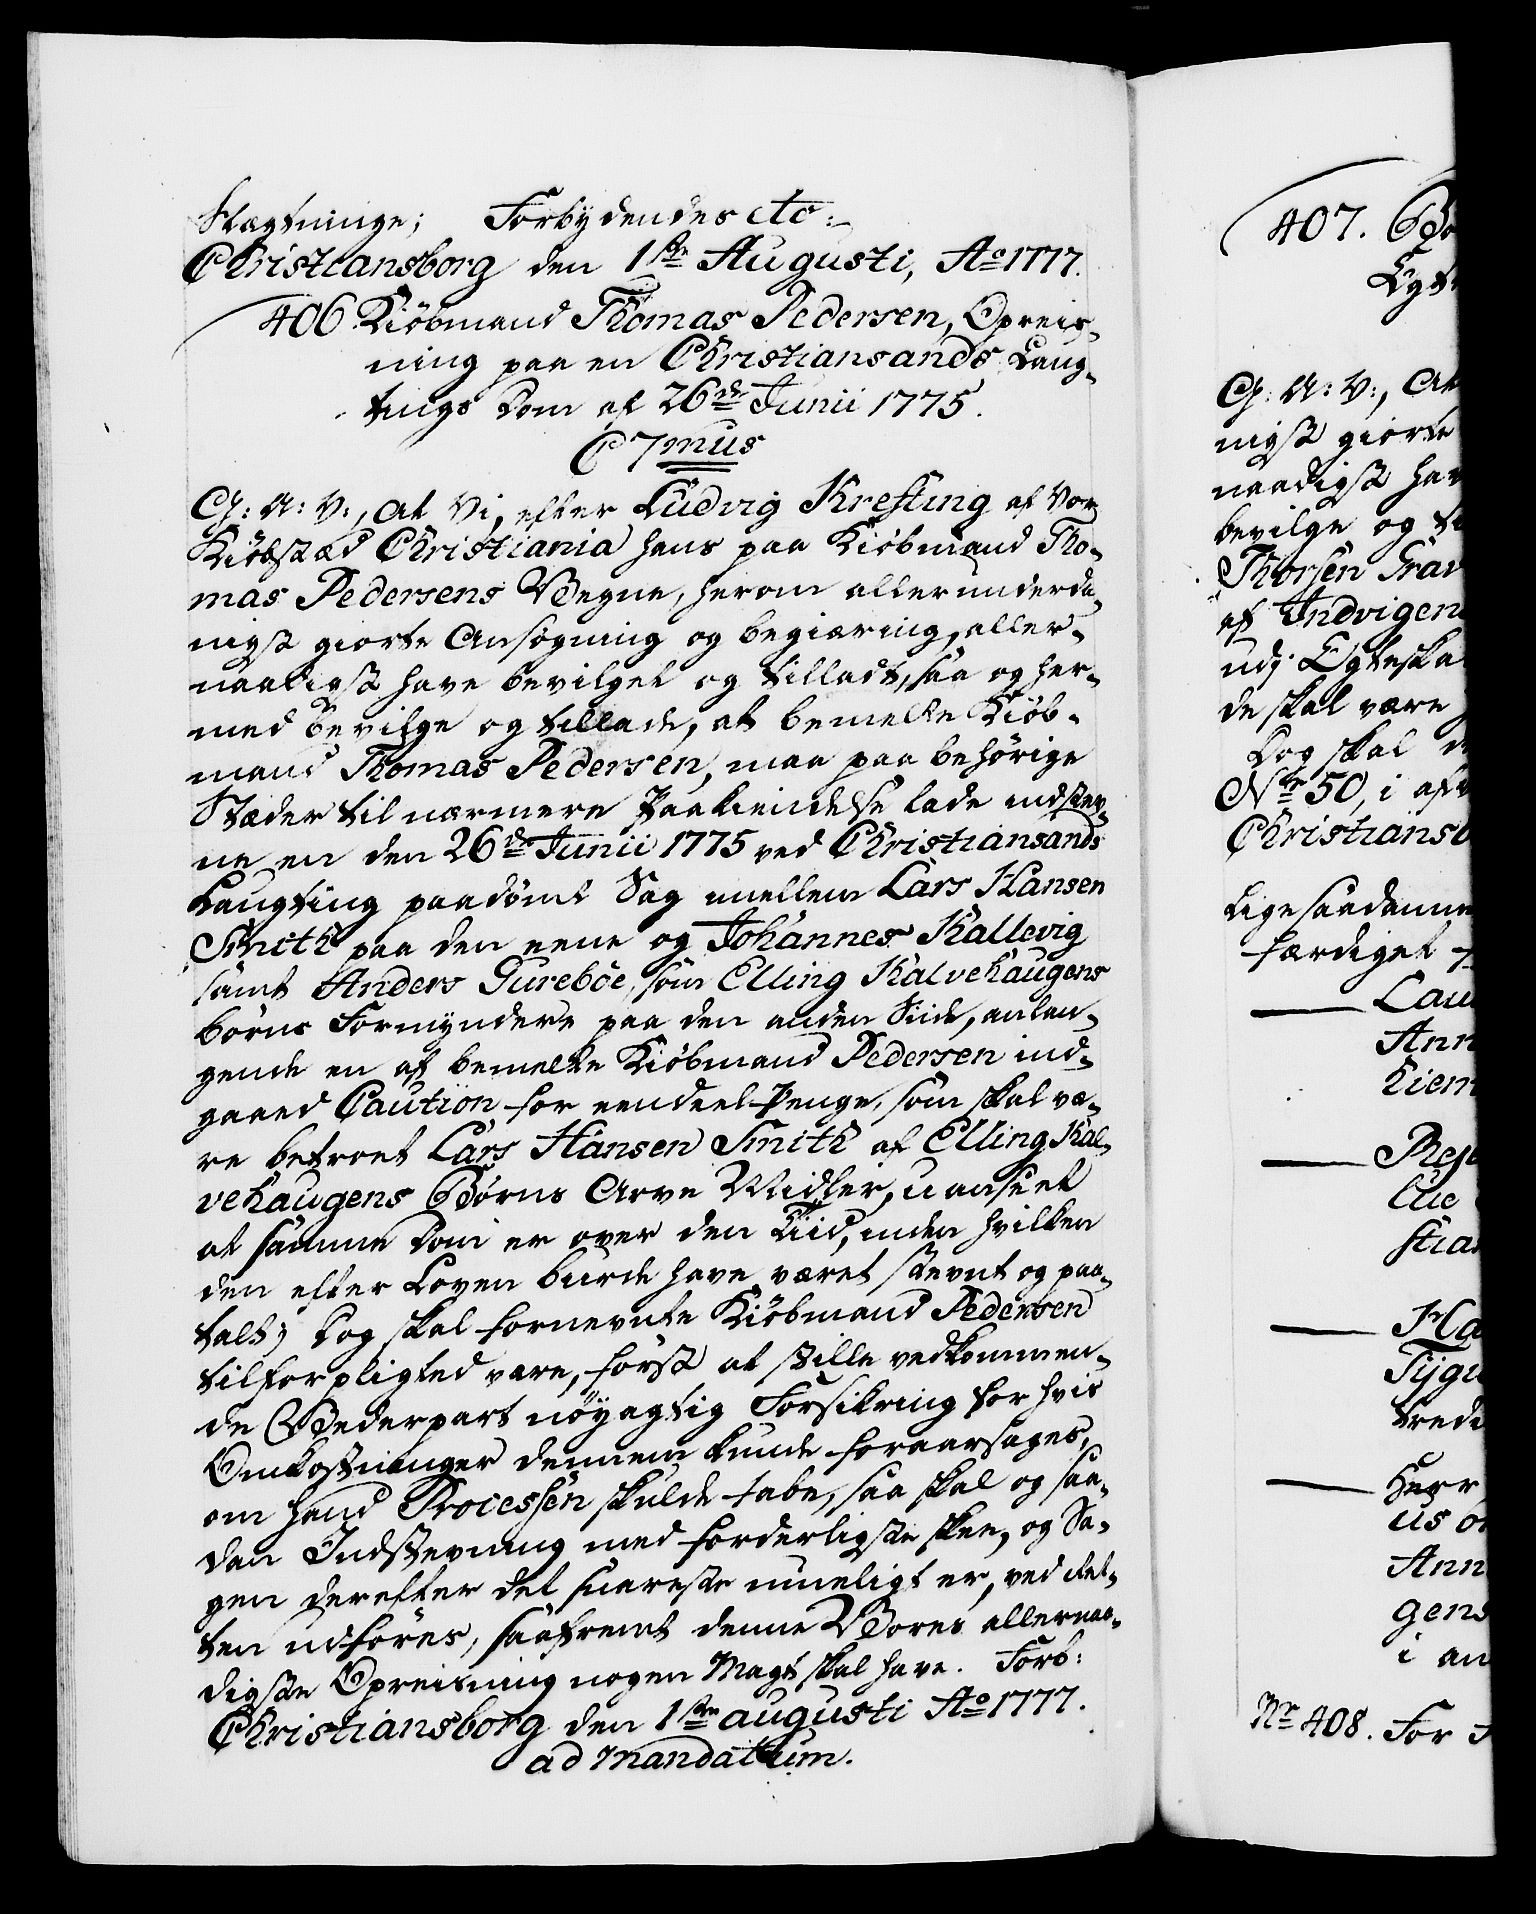 Slægtninge; Forbydendes etc:
Christiansborg den 1ste Augusti, Ao 1777.
406. Kiöbmand Thomas Pedersen, Opreis-
ning paa en Christiansands Laug-
tings Dom af 26de Junii 1775.
C 7mus
G: A: V:, At Vi, efter Ludvig Krefting af Vor
Kiöbstæd Christiania hans paa Kiöbmand Tho-
mas Pedersens Vegne, herom allerunderda-
nigst giorte Ansögning og begiæring, aller-
naadigst have bevilget og tilladt, saa og her-
med bevilge og tillade, at bemelte Kiöb-
mand Thomas Pedersen, maa paa behörige
Stæder til nærmere Paakiendelse lade indstev-
ne en den 26de Junii 1775 ved Christiansands
Laugting paadömt Sag imellem Lars Hansen
Smith paa den eene og Johannes Kallevig
samt Anders Gureböe, som Elling Kalvehaugens
börns Formyndere paa den anden Siide, anlan-
gende en af bemelte Kiöbmand Pedersen ind-
gaaed Caution for eendeel Penge, som skal væ-
re betroet Lars Hansen Smith af Elling Kal-
vehaugens Börns Arve Midler, uanseet
at samme Dom er over den Tiid, inden hvilken
den efter Loven burde have været stevnt og paa-
talt; Dog skal fornevnte Kiöbmand Pedersen
tilforpligted være, först at stille vedkommen-
de Vederpart nöyagtig Forsikring for hvis
Omkostninger dennem kunde foraarsages,
om hand Processen skulde tabe, saa skal og saa-
dan Indstevning med forderligste skee, og Sa-
gen derefter det snareste mueligt er, ved Ret-
ten udföres, saafremt denne Vores allernaa-
digste Opreisning nogen Magt skal have. Forb:
Christiansborg den 1ste augusti Ao 1777.
ad mandatum.
407.
Egt
G: A: V:, At
nigst giorte
naadigst hav
bevilge og ti
Thorsen Grav
af Indvigen
udj Egteska
de skal være
Dog skal
No 50, i af
Christiansb
Lige saadanne
færdiget
Lau
Ann
Kiem
Resp
lie
stian
Ha
Tygu
tredi
Herr
us
Ann
gens
i an
Nr 408. For